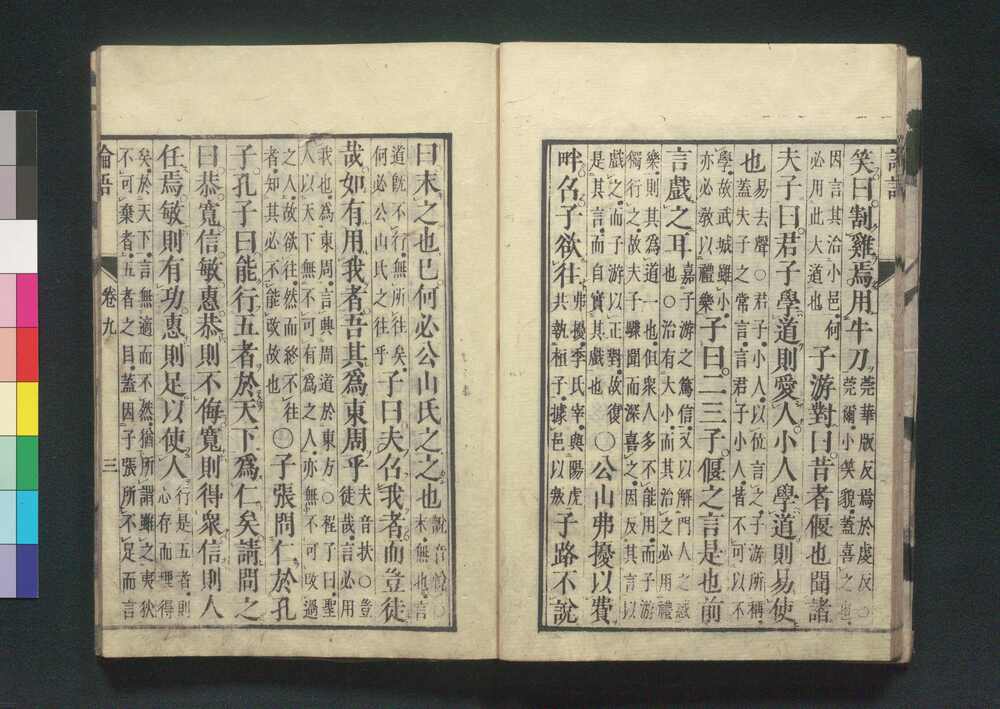 笑曰割雞焉用牛刀莞華版反焉於虔反○莞爾小笑貌蓋喜之也
因言其治小邑何必用此大道也子游對曰昔者偃也聞諸
夫子曰君子學道則愛人小人學道則易使
也易去聲○君子小人以位言之子游所稱蓋夫子之常言言君子小人皆不可以不
學故武城雖小亦必敎以禮樂子曰二三子偃之言是也前
言戲之耳嘉子游之篤信又以解門人之惑也○治有大小而其治之必用禮
樂則其爲道一也但衆人多不能用而子游獨行之故夫子驟聞而深喜之因反其言以
戲之而子游以正對故復是其言而自實其戲也○公山弗擾以費
畔召子欲往弗擾季氏宰與陽虎共執桓子據邑以叛子路不說
曰末之也已何必公山氏之之也說音悅○末無也言
道旣不行無所往矣何必公山氏之往乎子曰夫召我者而豈徒
哉如有用我者吾其爲東周乎夫音扶○豈徒哉言必用
我也爲東周言興周道於東方○程子曰聖人以天下無不可有爲之人亦無不可改過
之人故欲往然而終不往者知其必不能改故也○子張問仁於孔
子孔子曰能行五者於天下爲仁矣請問之
曰恭寬信敏惠恭則不侮寬則得衆信則人
任焉敏則有功惠則足以使人行是五者則心存而理得
矣於天下言無適而不然猶所謂雖之夷狄不可棄者五者之目蓋因子張所不足而言
論語 卷九 三